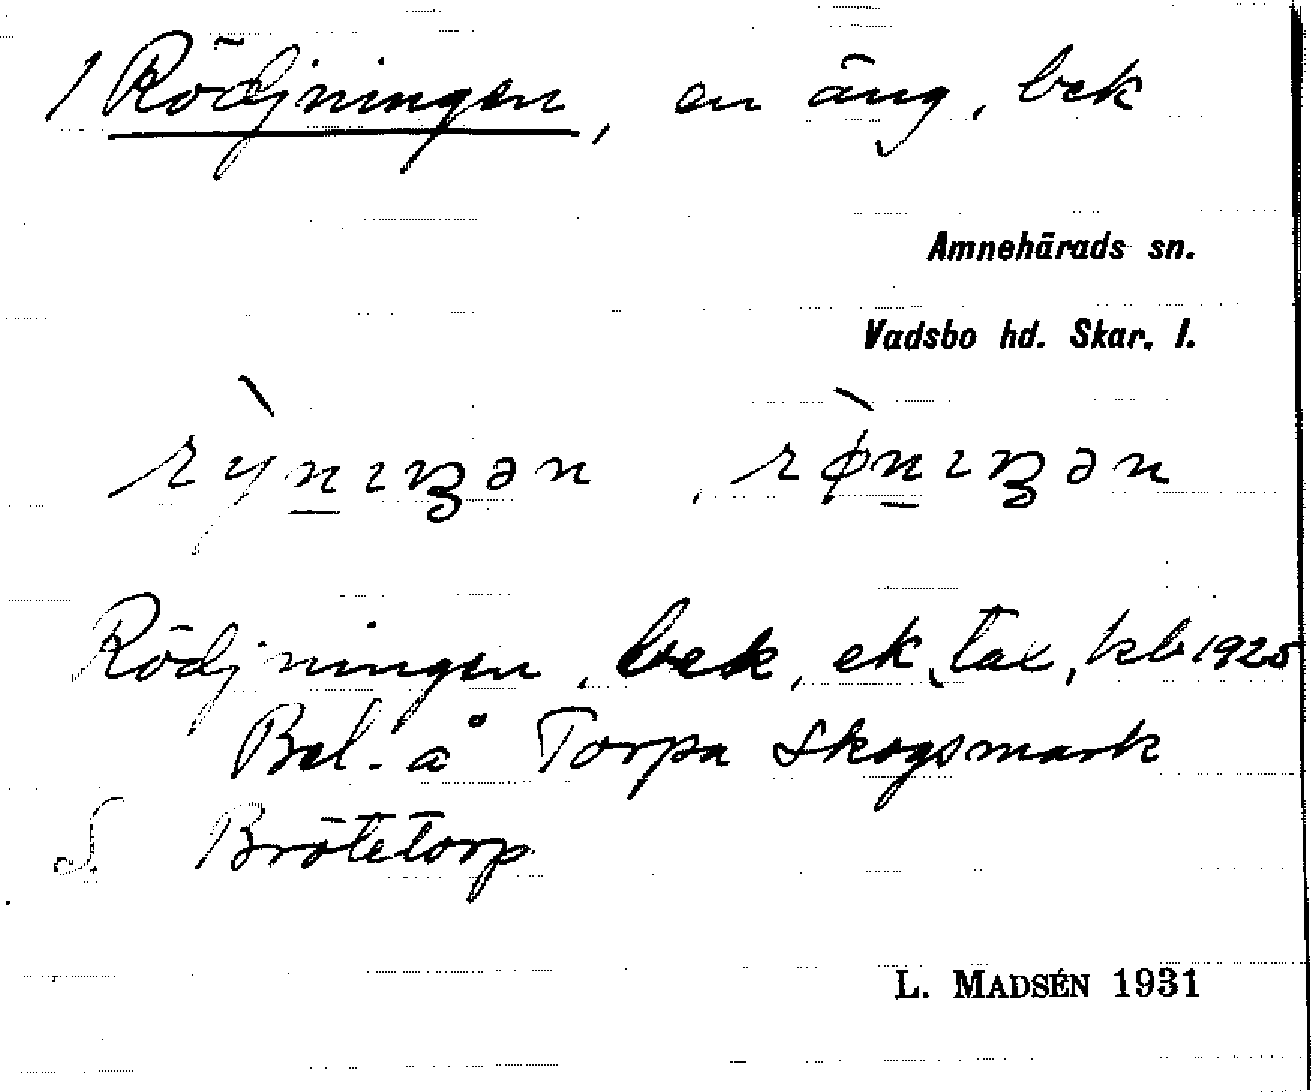 1 Rödjningen, en äng, bek
Amnehärads sn.
Vadsbo hd. Skar. l.
rỳn̲ɪŋən, rø̀n̲ɪŋən
Rödjningen, bek, ek, tax, kb 1925
Bel. å Torpa skogsmark
S. Brötetorp
L. MADSÉN 1931